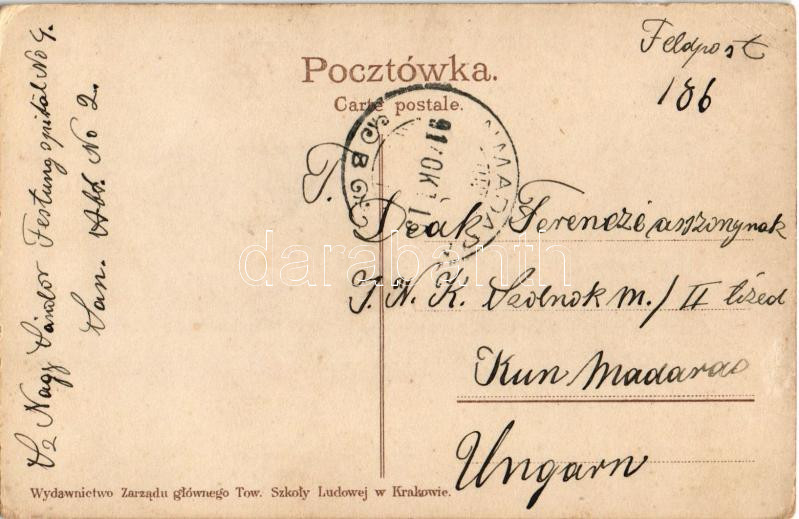 Feldpost
186
Pocztówka.
Carte postale.
T.
Deák Ferenczé asszonynak
J. N. K. Szolnok m./ II tized
Kun Madaras
Ungarn
Sz Nagy Sándor Festungspital No 9.
San. Abt. No 2.
Wydawnictwo Zarządu głównego Tow. Szkoły Ludowej w Krakowie.
darabanth